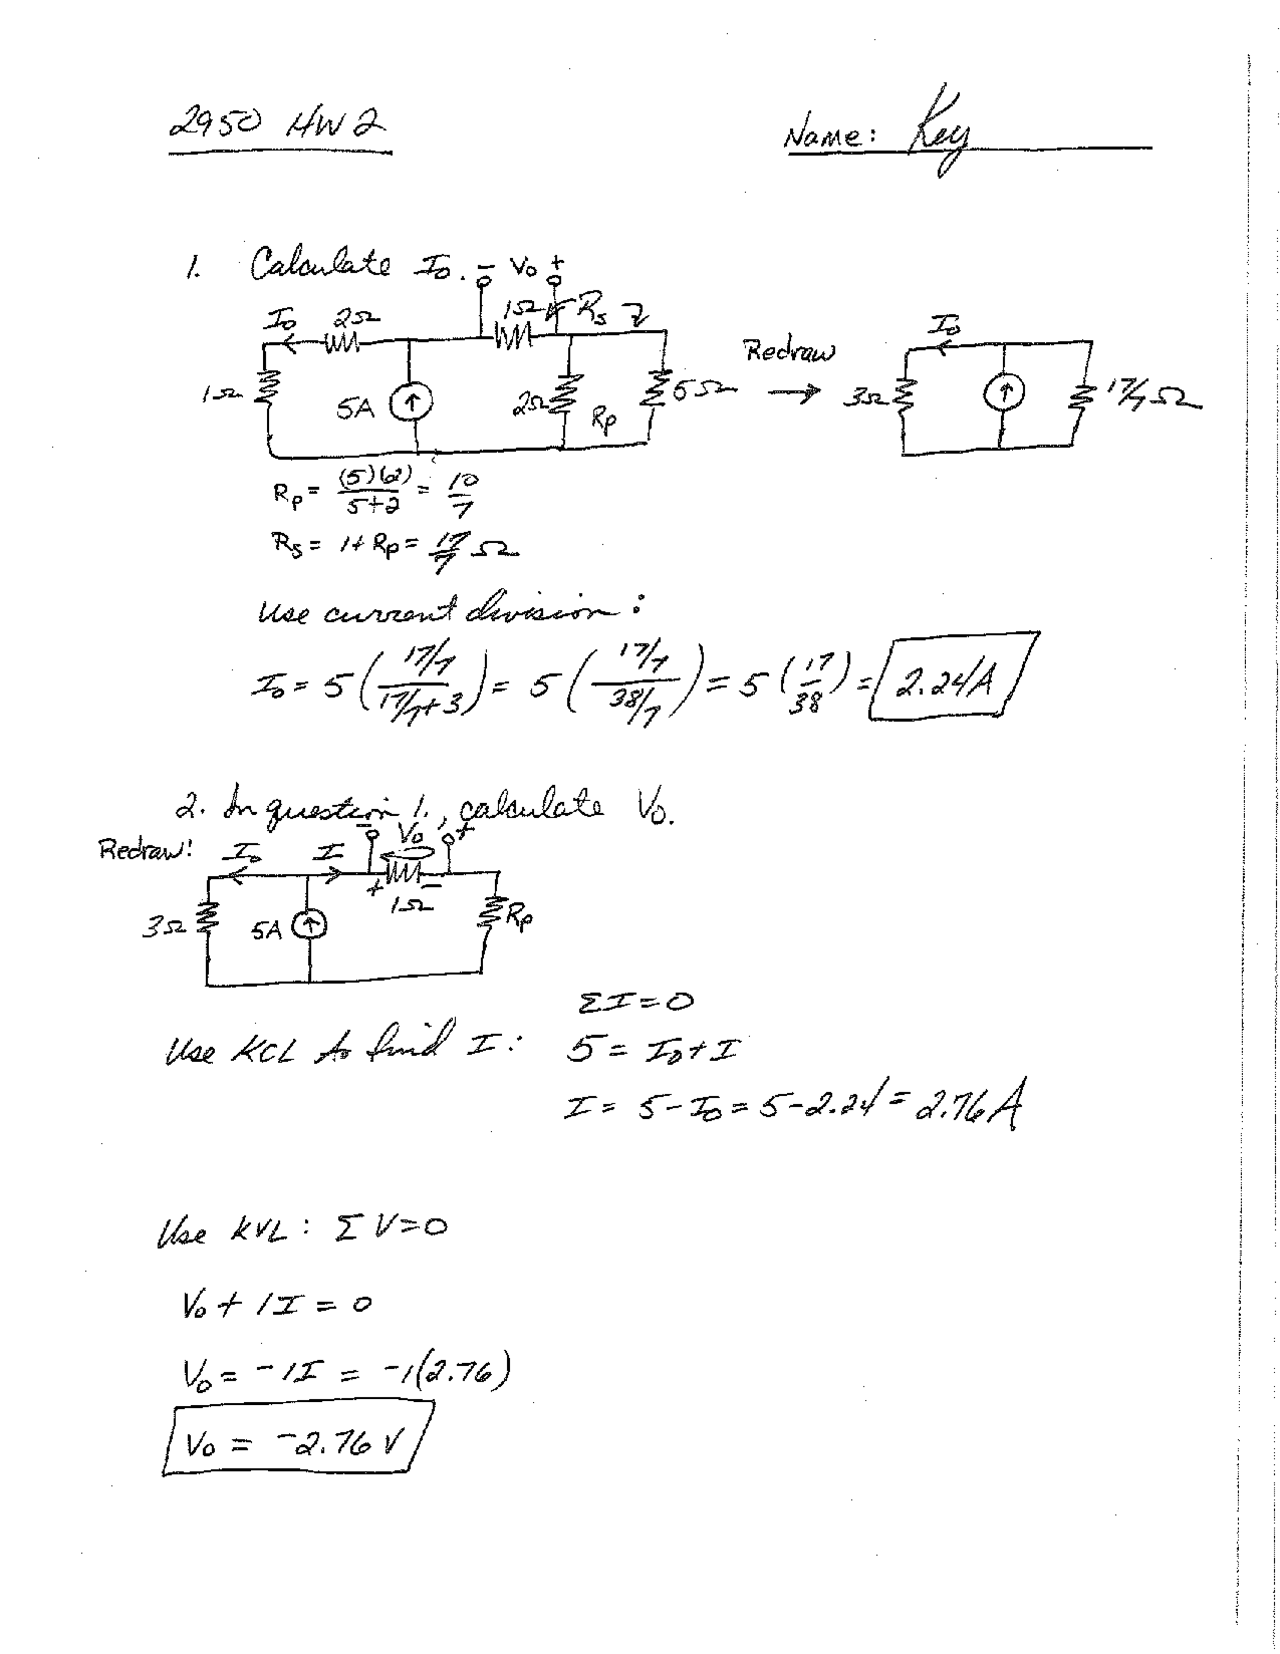 2950 HW2 Name: Key
1. Calculate Io. - Vo +
1Ω Rs
Io 2Ω
Io
Redraw
1Ω 5A 2Ω Rp 5Ω → 3Ω 17/7 Ω
Rp = (5)(2)/5+2 = 10/7
Rs = 1 + Rp = 17/7 Ω
Use current division:
Io = 5 (17/7 / 17/7+3) = 5 (17/7 / 38/7) = 5 (17/38) = 2.24A
2. In question 1., calculate Vo.
- Vo +
Redraw: Io I
+ -
1Ω
3Ω 5A Rp
ΣI=0
Use KCL to find I: 5 = Io + I
I = 5 - Io = 5 - 2.24 = 2.76 A
Use KVL: ΣV=0
Vo + 1I = 0
Vo = -1I = -1(2.76)
Vo = -2.76 V